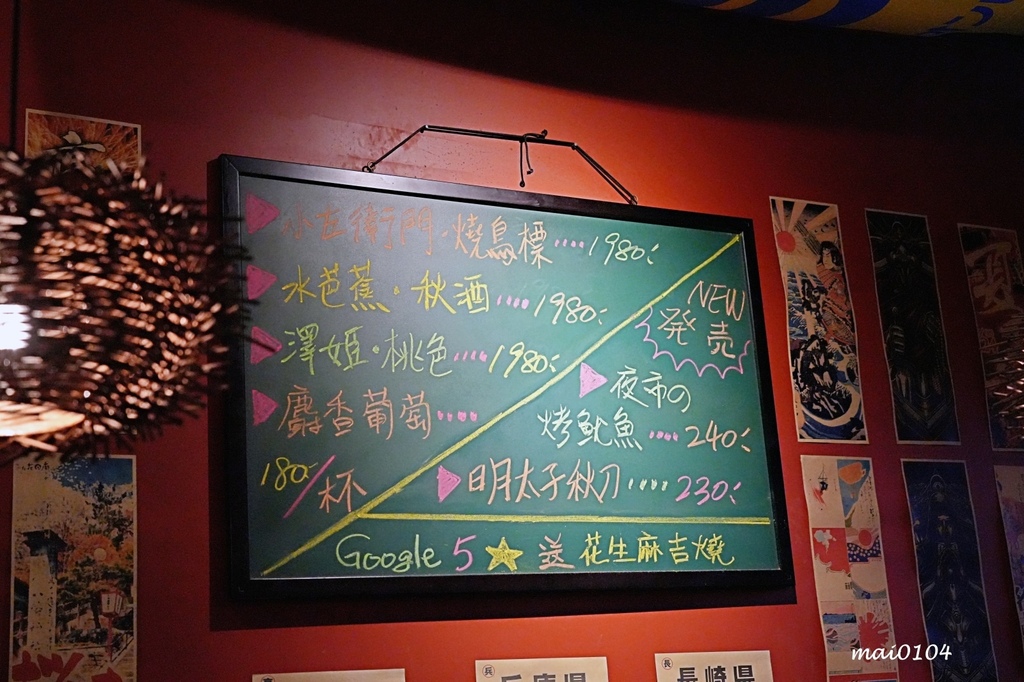 小左衛門·燒鳥標....1980
水芭蕉·秋酒....1980
澤姫·桃色....1980
麝香葡萄....
180/杯
NEW
発売
夜市の
烤魷魚....240
明太子秋刀....230
Google 5★送花生麻吉燒
兵庫県
長 長崎県
mai0104